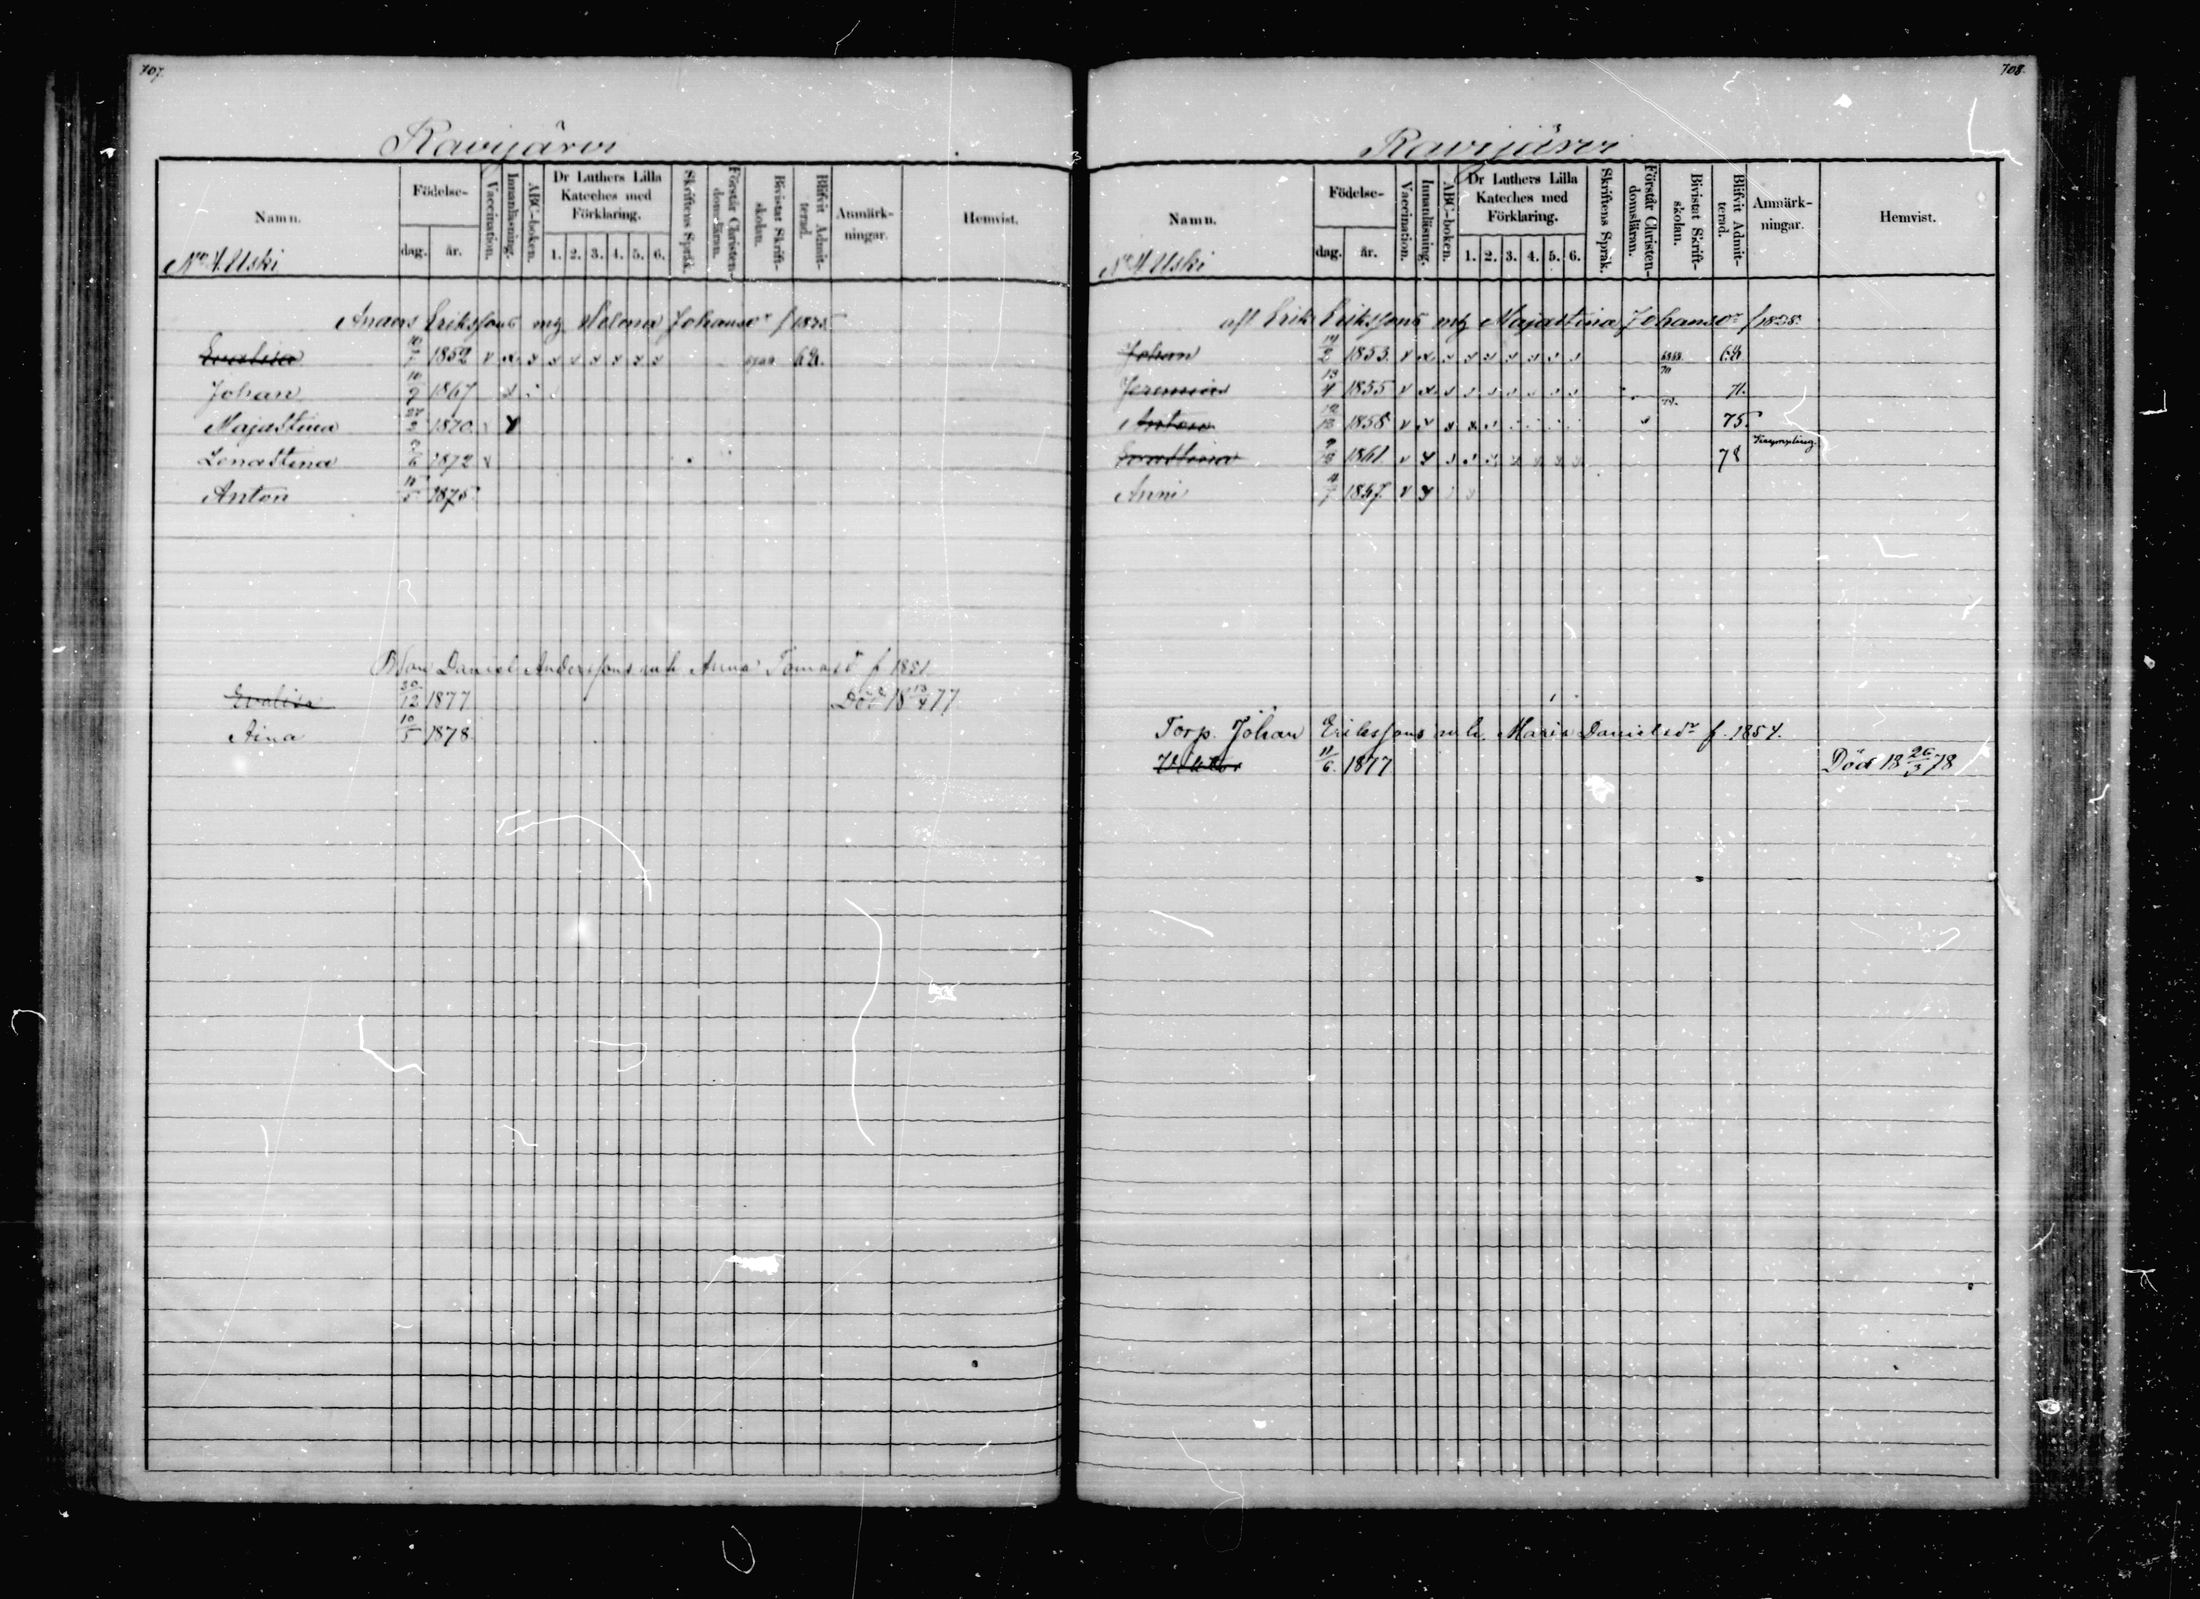 707.
Ravijärvi
Namn.
Födelse-
dag.
år.
Vaccination.
Innanläsning.
ABC-boken.
Dr Luthers Lilla
Kateches med
Förklaring.
1. 2. 3. 4. 5. 6.
Skriftens Språk.
Förstår Christen-
domsläran.
Bivistat Skrift-
skolan.
Blifvit Admit-
terad.
Anmärk-
ningar.
Hemvist.
No 4. Uski
Anders Erikssons mh Helena Johansdr f 1835
10/7 1852
Johan 10/9 1867
Majastina 2 1870
Lenastina 3/6 1872
Anton 5 1875
Daniel Anderssons mh Anna Tomasd f 1851
Evalisa 30/12 1877 Död 18 13/4 77
Aina 10/5 1878
708.
Ravijärvi
Namn.
Födelse-
dag.
år.
Vaccination.
Innanläsning.
ABC-boken.
Dr Luthers Lilla
Kateches med
Förklaring.
1. 2. 3. 4. 5. 6.
Skriftens Språk.
Förstår Christen-
domsläran.
Bivistat Skrift-
skolan.
Blifvit Admit-
terad.
Anmärk-
ningar.
Hemvist.
No 4 Uski
afl Erik Erikssons mh Majastina Johansdr f 1828.
Johan 14/2 1853.
Jeremias 13/4 1855 71.
Anton 12/12 1858 75.
1861 78
Anni 4/7 1867
Torp. Johan Erikssons mh. Maria Danielsdr f. 1854.
Viktor 11/6. 1877 Död 18 26/3 78